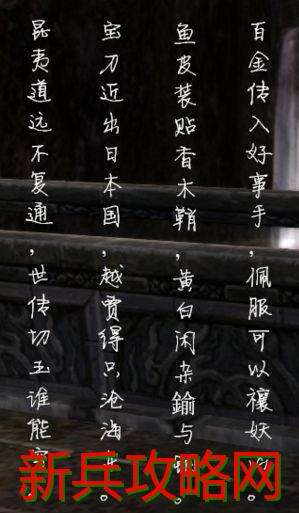 昆夷道远不复通,世传切玉谁能
宝刀近出日本国,越贾得只沧海东。
鱼皮装贴香木鞘,黄白闲杂鍮与。
百金传入好事手,佩服可以禳妖
新兵攻略网